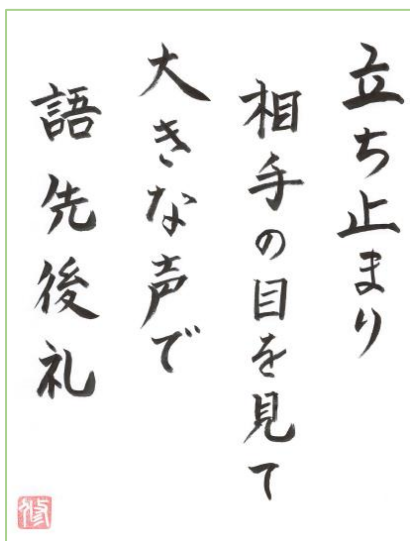 立ち止まり
相手の目を見て
大きな声で
語先後礼
修